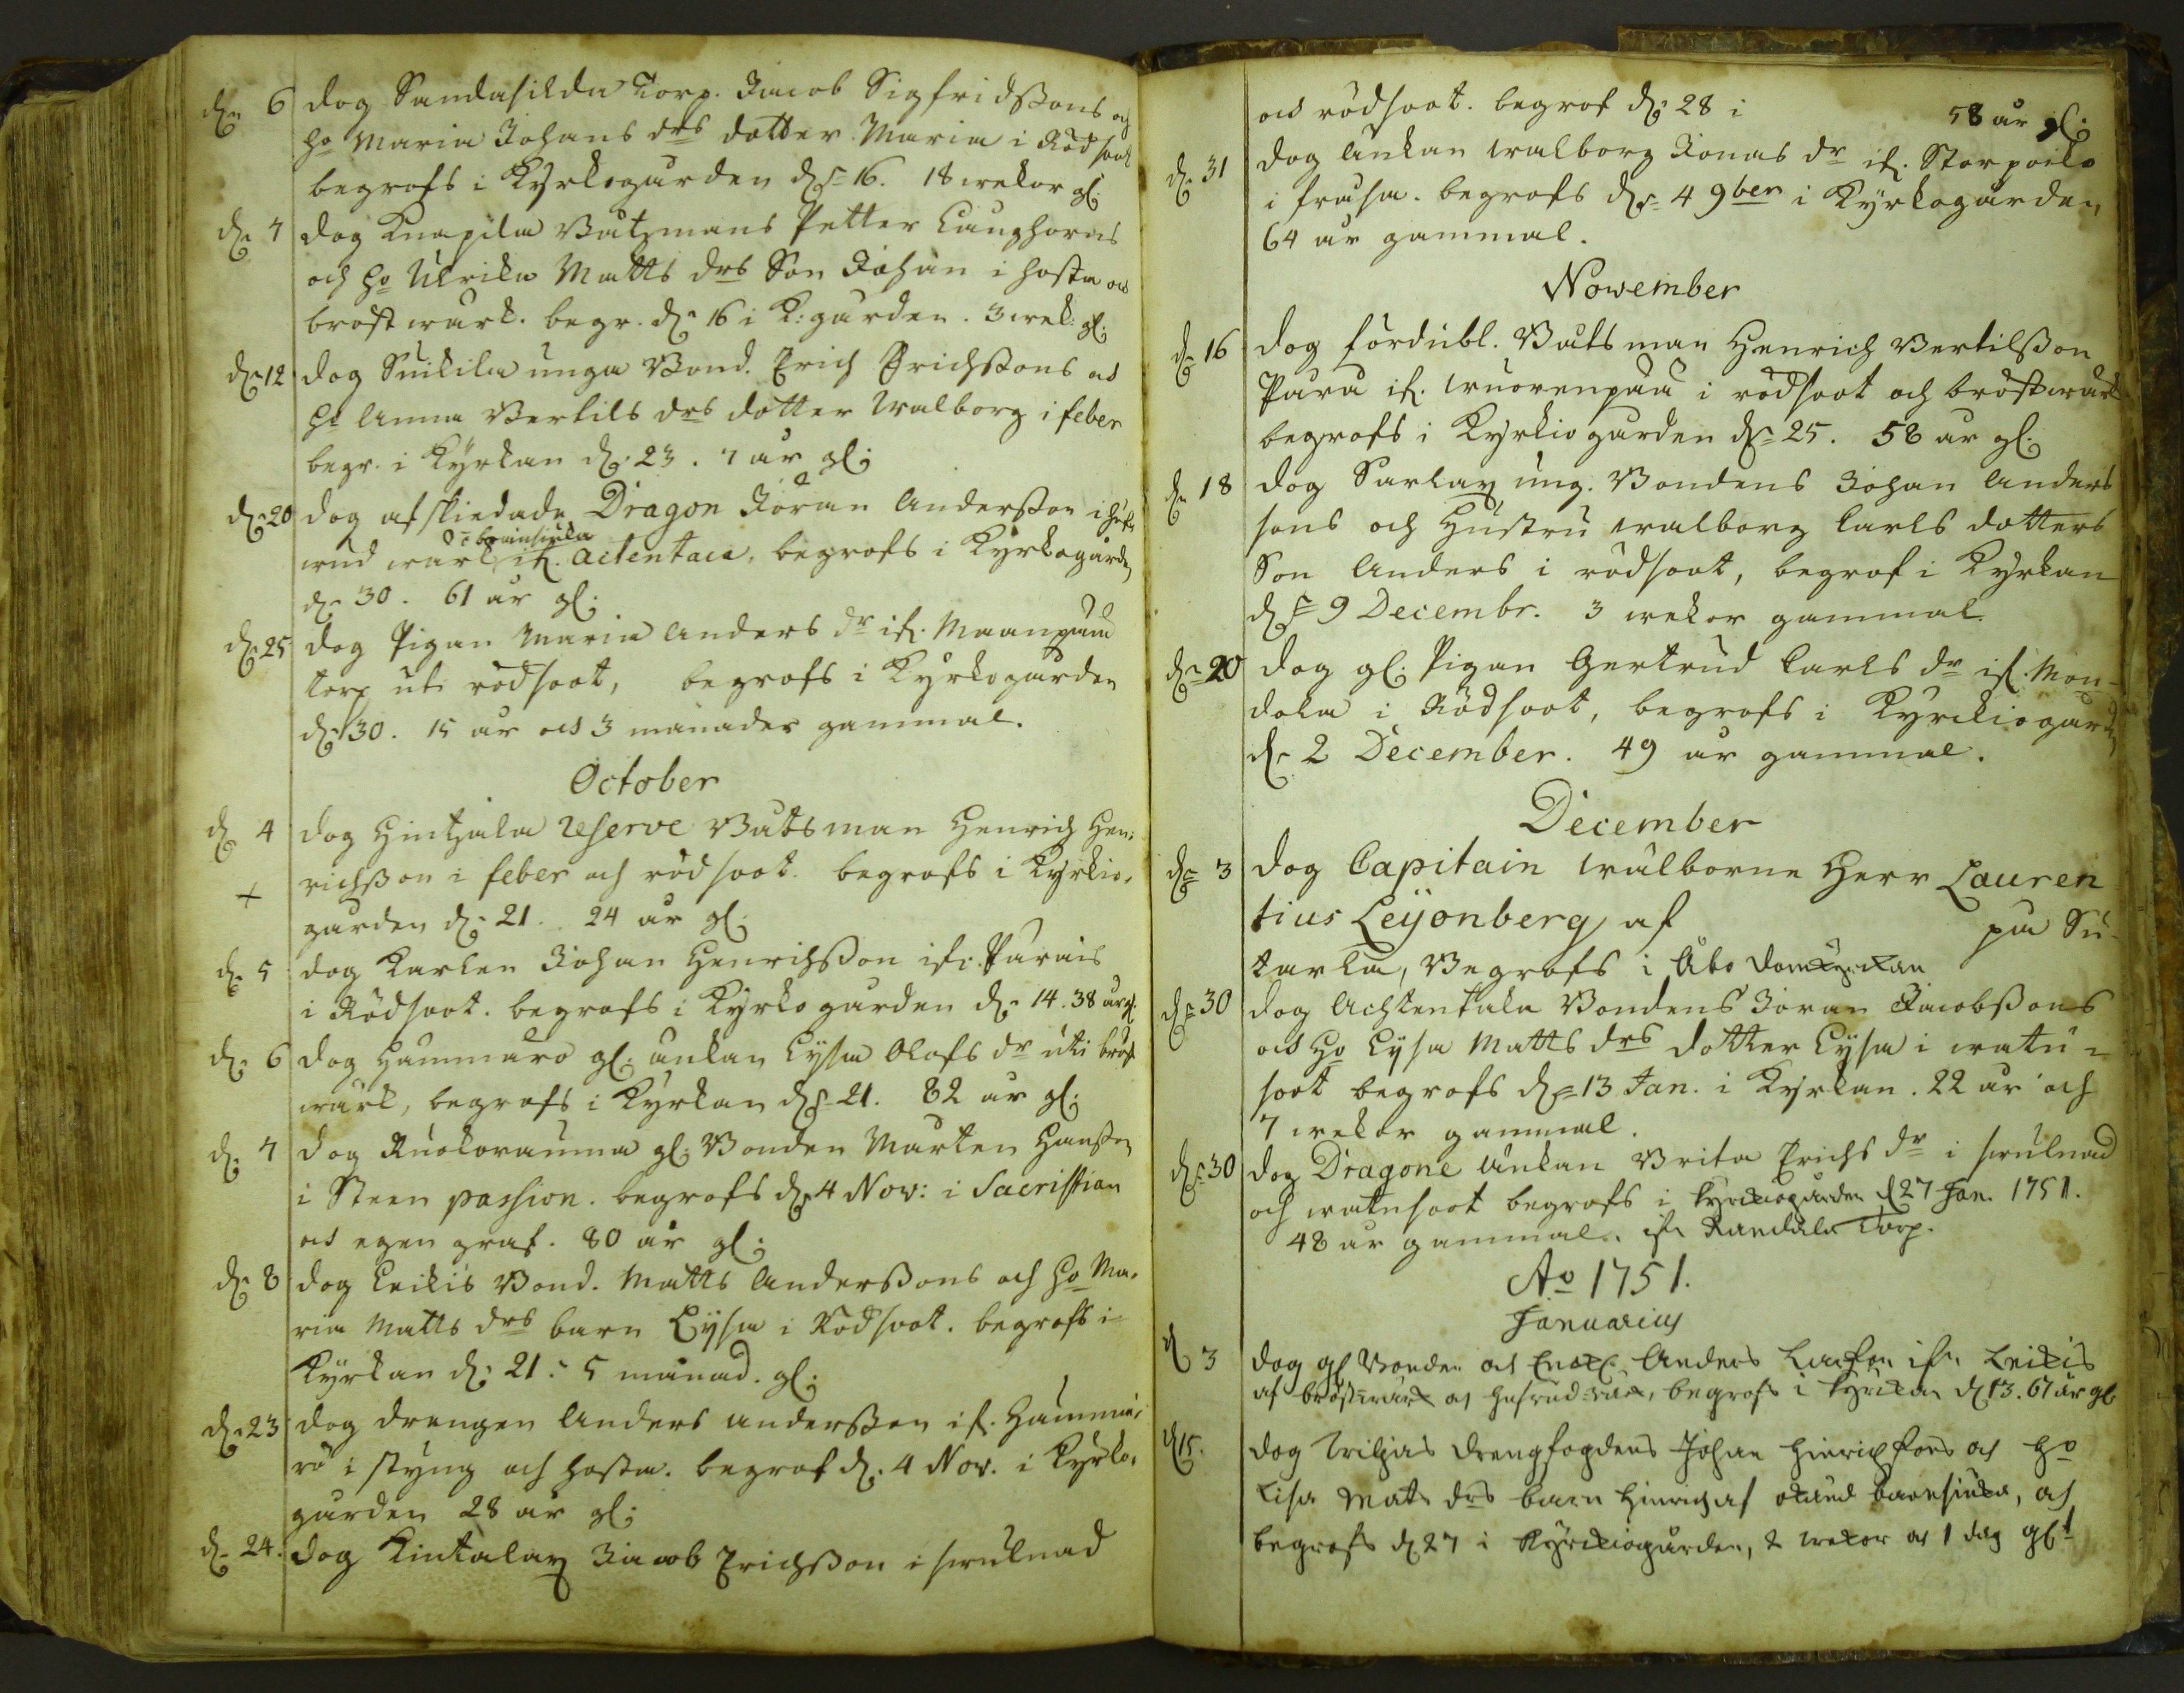 dn 6 dog Sandasilda Torp. Jacob Sigfridssons och
ho Maria Johans drs dotter Maria i Rödsoot
begrofs i Kyrkogården dn 16. 18 wekor gl:
dn 7 dog Knapila Båtzmans Petter Langhorns
och ho Ulrika Matts drs Son Johan i hosta och
bröst wärk. begr. dn 16 i K:gården. 3 wek: gl:
dn 12 dog Suikila unga Bond. Erich Erichssons och
ho Anna Bertils drs dotter Walborg i feber
begr. i Kyrkan dn 23. 7 år gl:
dn 20 dog afskiedade Dragon Jöran Andersson i hufw
wud wärk ifr. Actentaca, begrofs i Kyrkogården
dn 30. 61 år gl:
dn 25 dog Pigan Maria Anders dr ifr. Maanpää
torp uti rödsoot, begrofs i Kyrkogården
dn 30. 15 år och 3 månader gammal.
October
dn 4 dog Hintzala reserve Båtsman Henrich Hen-
richsson i feber och rödsoot. begrofs i Kyrkio-
+
gården dn 21. 24 år gl:
dn 5 dog Karlen Johan Henrichsson ifr. Parais
i Rödsoot. begrofs i Kyrkogården dn 14. 38 år gl:
dn 6 dog Hammaro gl: änkan Lysa Olofs dr uti bröst
wärk, begrofs i Kyrkan dn 21. 82 år gl:
dn 7 dog Ruokorauma gl: Bonden Mårten Hansson
i Steen passion. begrofs dn 4 Nov: i Sacristian
och egen graf. 80 år gl:
dn 8 dog Leikis Bond. Matts Anderssons och ho Ma-
ria Matts drs barn Lysa i Rödsoot. begrofs i
Kyrkan dn 21. 5 månad. gl:
dn 23 dog drengen Anders Andersson ifr. Hamma-
rö i styng och hosta. begrof dn 4 Nov. i Kyrko-
gården 28 år gl:
dn 24. dog Kintalax Jacob Erichsson i swulnad
och rödsoot. begrof dn 28 i 58 år gl:
dn 31 dog Änkan Walborg Jonas dr ifr. Storpoiko
i frusa. begrofs dn 4 9ber i Kyrkogården,
64 år gammal.
November
dn 16 dog fördubl. Båtsman Henrich Bertilsson
Pura ifr. Wuorenpää i rödsoot och bröstwärk
begrofs i Kyrkiogården dn 25. 58 år gl:
dn 18 dog Sarlax ung. Bondens Johan Anders
sons och Hustru Walborg Carls dotters
Son Anders i rödsoot, begrof i Kyrkan
dn 9 Decembr. 3 wekor gammal.
dn 20 dog gl: Pigan Gertrud Carls dr ifr. Mon-
dola i Rödsoot, begrofs i Kyrckiogården
dn 2 December. 49 år gammal.
December
dn 3 dog Capitain Wälborne Herr Lauren
tius Leijonberg af på Su-
tarla, Begrofs i Åbo Domkyrkan
dn 30 dog Achtentaka Bondens Jöran Jacobssons
och ho Lysa Matts drs dotter Lysa i watu-
soot begrofs dn 13 Jan. i Kyrkan. 22 år och
7 wekor gammal.
dn 30 dog Dragone Änkan Brita Erichs dr i swulnad
och watusoot begrofs i Kyrckiogården d 27 Jan. 1751.
48 år gammal. ifr Randala Torp.
Ao 1751.
Januarius
d 3 dog gl Bonden och Anders Larsson ifrn Leikis
af bröstwärk och hufwud wärk, begrofs i Kyrckan d 13. 67 år gl.
d 15. dog Drengfogdens Johan Hinrichsons och ho
Lisa Mats drs barn Hinrich af okänd barnsiuka, och
begrofs d 27 i Kyrckiogården, 2 wekor och 1 dag gl